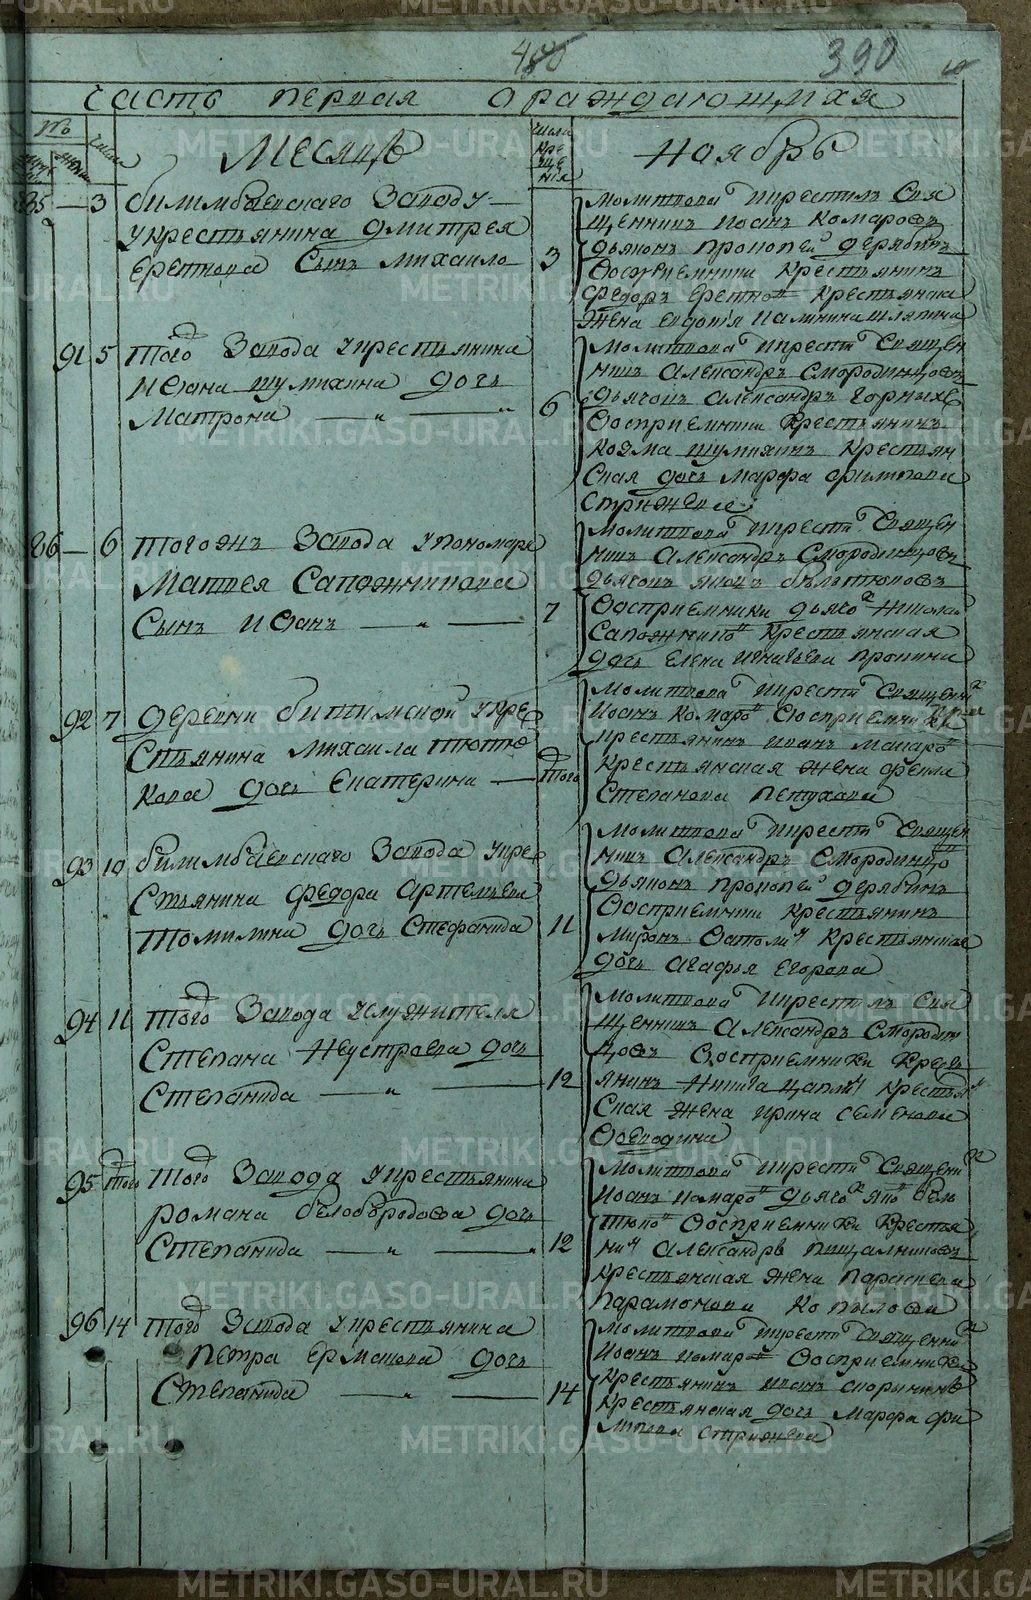 390
часть первая ораждающихся
№
числа
Месяцъ
число
кре
ще
нія
Ноябрь
85 — 3 билимбаевскаго Заводу
укрестьянина Дмитрея
Еретнова Сынъ михаило
3
молитвовалъ икрестилъ Свя
щенникъ иоанъ комаровъ
дьяконъ прокопей дерябинъ
восприемники крестьянинъ
федоръ Еретно крестьянска
жена евдокія калинина шляпина
91 5 того завода укрестьянина
ивана шумихина дочь
Матрона
6
молитвова икрести Священ
никъ александръ Смородинцовъ
дьячокъ александръ горныхъ
восприемники крестьянинъ
козма шумихинъ крестьян
ская дочь марфа филипова
стрижева
86 — 6 тогожъ завода упономаря
Матвея Сапожникова
Сынъ иванъ
7
молитвова икрести Священ
никъ александръ Смородинцовъ
дьячокъ яковъ белтюковъ
восприемники дьячо николай
Сапожнико крестьянская
дочь елена игнатьева пронина
92 7 деревни битимской укре
стьянина михаила тютю
кова дочь екатерина
того
молитвова икрести священни
иоанъ комаро восприемники
крестьянинъ иванъ макаро
крестьянская жена фекла
степанова петухова
93 10 билимбаевскаго завода укре
стьянина федора артемьева
томилина дочь стефанида
11
молитвова икрести Священ
никъ александръ Смородинцо
дьяконъ прокопей дерябинъ
восприемники крестьянинъ
миронъ ватоли крестьянская
дочь агафья егорова
94 11 того завода услужителя
степана неустроева дочь
степанида
12
молитвова икрестилъ Свя
щенникъ александръ Смородин
цовъ восприемники крест
янинъ никита цапли крестья
ская жена ирина семенова
воеводина
95 того того завода укрестьянина
романа белобородова дочь
степанида
12
молитвова икрести священни
иоанъ комаро дьячо яко бел
тюко восприемники крестья
ни александръ пищалниковъ
крестьянская жена параскева
парамонова копылова
96 14 того завода укрестьянина
петра ермакова дочь
степанида
14
молитвова икрести священни
иоанъ комаро восприемники
крестьянинъ иванъ скорынинъ
крестьянская дочь марфа фи
липова стрижева
METRIKI.GASO-URAL.RU